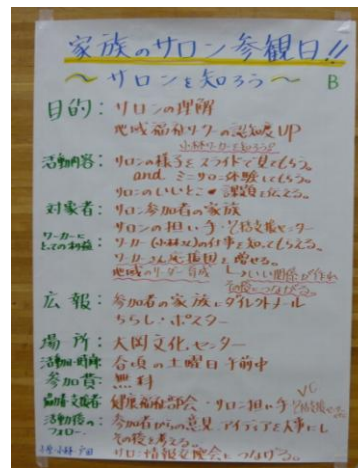 家族のサロン参観日!!
~サロンを知ろう~ B
目的: サロンの理解
地域福祉ワーカーの認知度UP
小林ワーカーを知ろう!?
活動内容: サロンの様子をスライドで見てもらう。
and ミニサロン体験してもらう。
サロンのいいとこ 課題を伝える。
対象者: サロン参加者の家族
サロンの担い手・包括支援センター
ワーカーにとっての利益: ワーカー(小林さん)の仕事を知ってもらえる。
ワーカーさん応援団を増やせる。
地域のリーダー育成 いい関係が作れ
につながる。
広報: 参加者の家族にダイレクトメール
ちらし・ポスター
場所: 大岡文化センター
活動日・時期: 合頃の土曜日 午前中
参加費: 無料
協働・支援者: 健康福祉部会・サロン担い手 包括支援センター VC
活動後のフォロー: 参加者からの意見、アイディアを大事にし
その後を考える。
サロン情報交換会につなげる。
小林 戸田